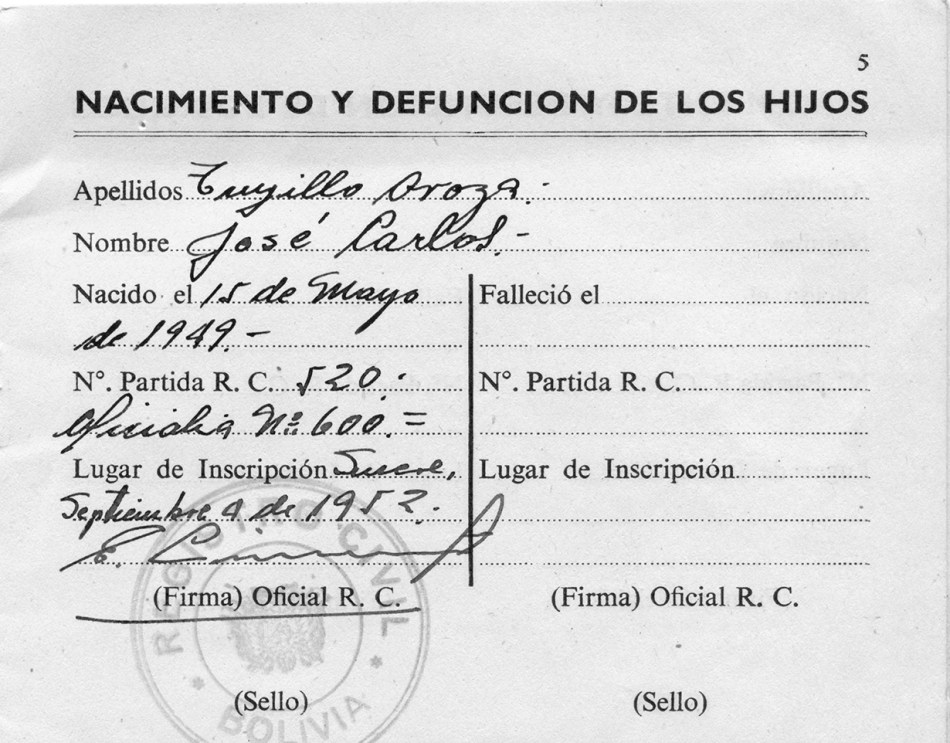 5
NACIMIENTO Y DEFUNCION DE LOS HIJOS
Apellidos Trujillo Oroza.
Nombre José Carlos.-
Nacido el 15 de Mayo
de 1949.-
Nº. Partida R. C. 520.
Oficialia Nº 600.=
Lugar de Inscripción Sucre,
Septiembre 4 de 1952.
(Firma) Oficial R. C.
(Sello)
Falleció el
Nº. Partida R. C.
Lugar de Inscripción
(Firma) Oficial R. C.
(Sello)
REGISTRO CIVIL
BOLIVIA